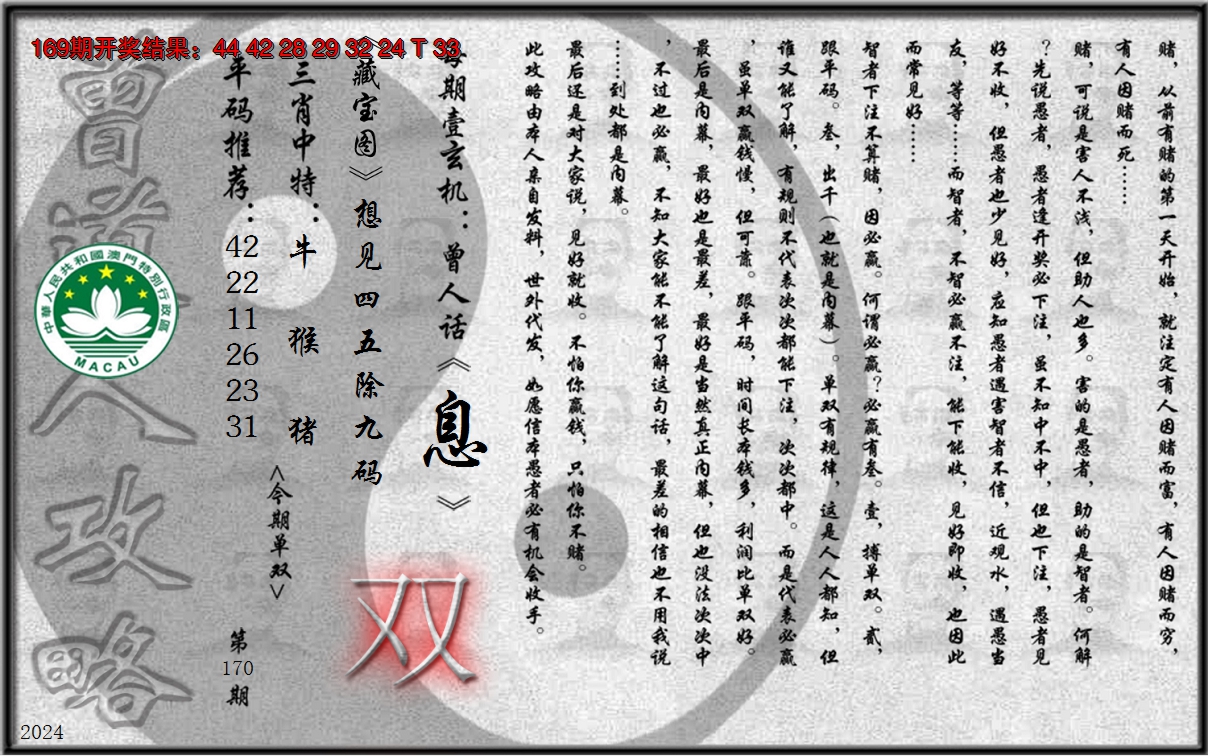 169期开奖结果：44 42 28 29 32 24 T 33
赌，从前有赌的第一天开始，就注定有人因赌而富，有人因赌而穷，
有人因赌而死……
赌，可说是害人不浅，但助人也多。害的是愚者，助的是智者。何解
？先说愚者，愚者逢开奖必下注，虽不知中不中，但也下注，愚者见
好不收，但愚者也少见好，应知愚者遇害智者不信，近观水，遇愚当
友，等等……而智者，不智必赢不注，能下能收，见好即收，也因此
而常见好……
智者下注不算赌，因必赢。何谓必赢？必赢有叁。壹，搏单双。贰，
跟平码。叁，出千（也就是内幕）。单双有规律，这是人人都知，但
谁又能了解，有规则不代表次次都能下注，次次都中。而是代表必赢
，虽单双赢钱慢，但可靠。跟平码，时间长本钱多，利润比单双好。
最后是内幕，最好也是最差，最好是当然真正内幕，但也没法次次中
，不过也必赢，不知大家能不能了解这句话，最差的相信也不用我说
……到处都是内幕。
最后还是对大家说，见好就收。不怕你赢钱，只怕你不赌。
此攻略由本人亲自发料，世外代发，如愿信本愚者必有机会收手。
每期壹玄机：曾人话《息》
《藏宝图》想见四五除九码
双
三肖中特：牛 猴 猪
<今期单双>
平码推荐：42 22 11 26 23 31
第170期
曾道人攻略
中華人民共和國澳門特別行政區
MACAU
2024